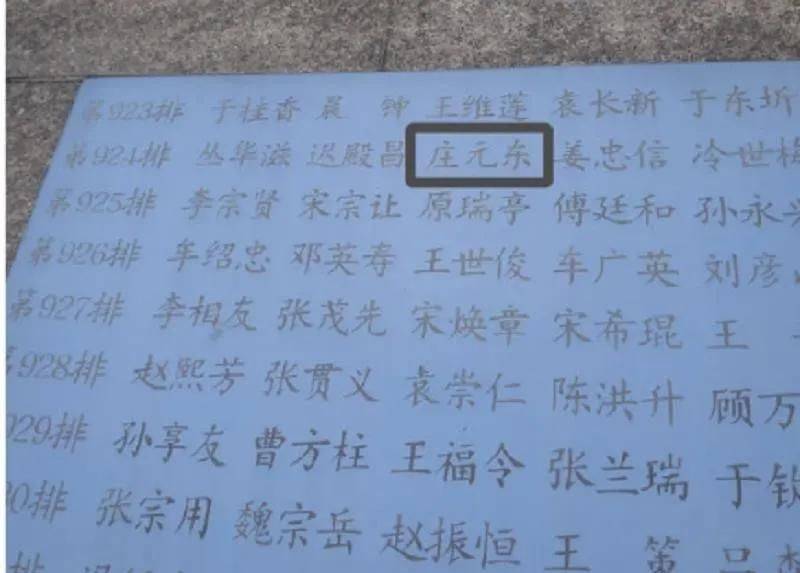 第923排 于桂香 晨 钟 王维莲 袁长新 于东圻
第924排 丛华滋 迟殿昌 庄元东 姜忠信 冷世梅
第925排 李宗贤 宋宗让 原瑞亭 傅廷和 孙永兴
第926排 牟绍忠 邓英寿 王世俊 车广英 刘彦
第927排 李相友 张茂先 宋焕章 宋希琨 王
928排 赵熙芳 张贯义 袁崇仁 陈洪升 顾万
929排 孙享友 曹方柱 王福令 张兰瑞 于钦
排 张宗用 魏宗岳 赵振恒 王 策 吕
排